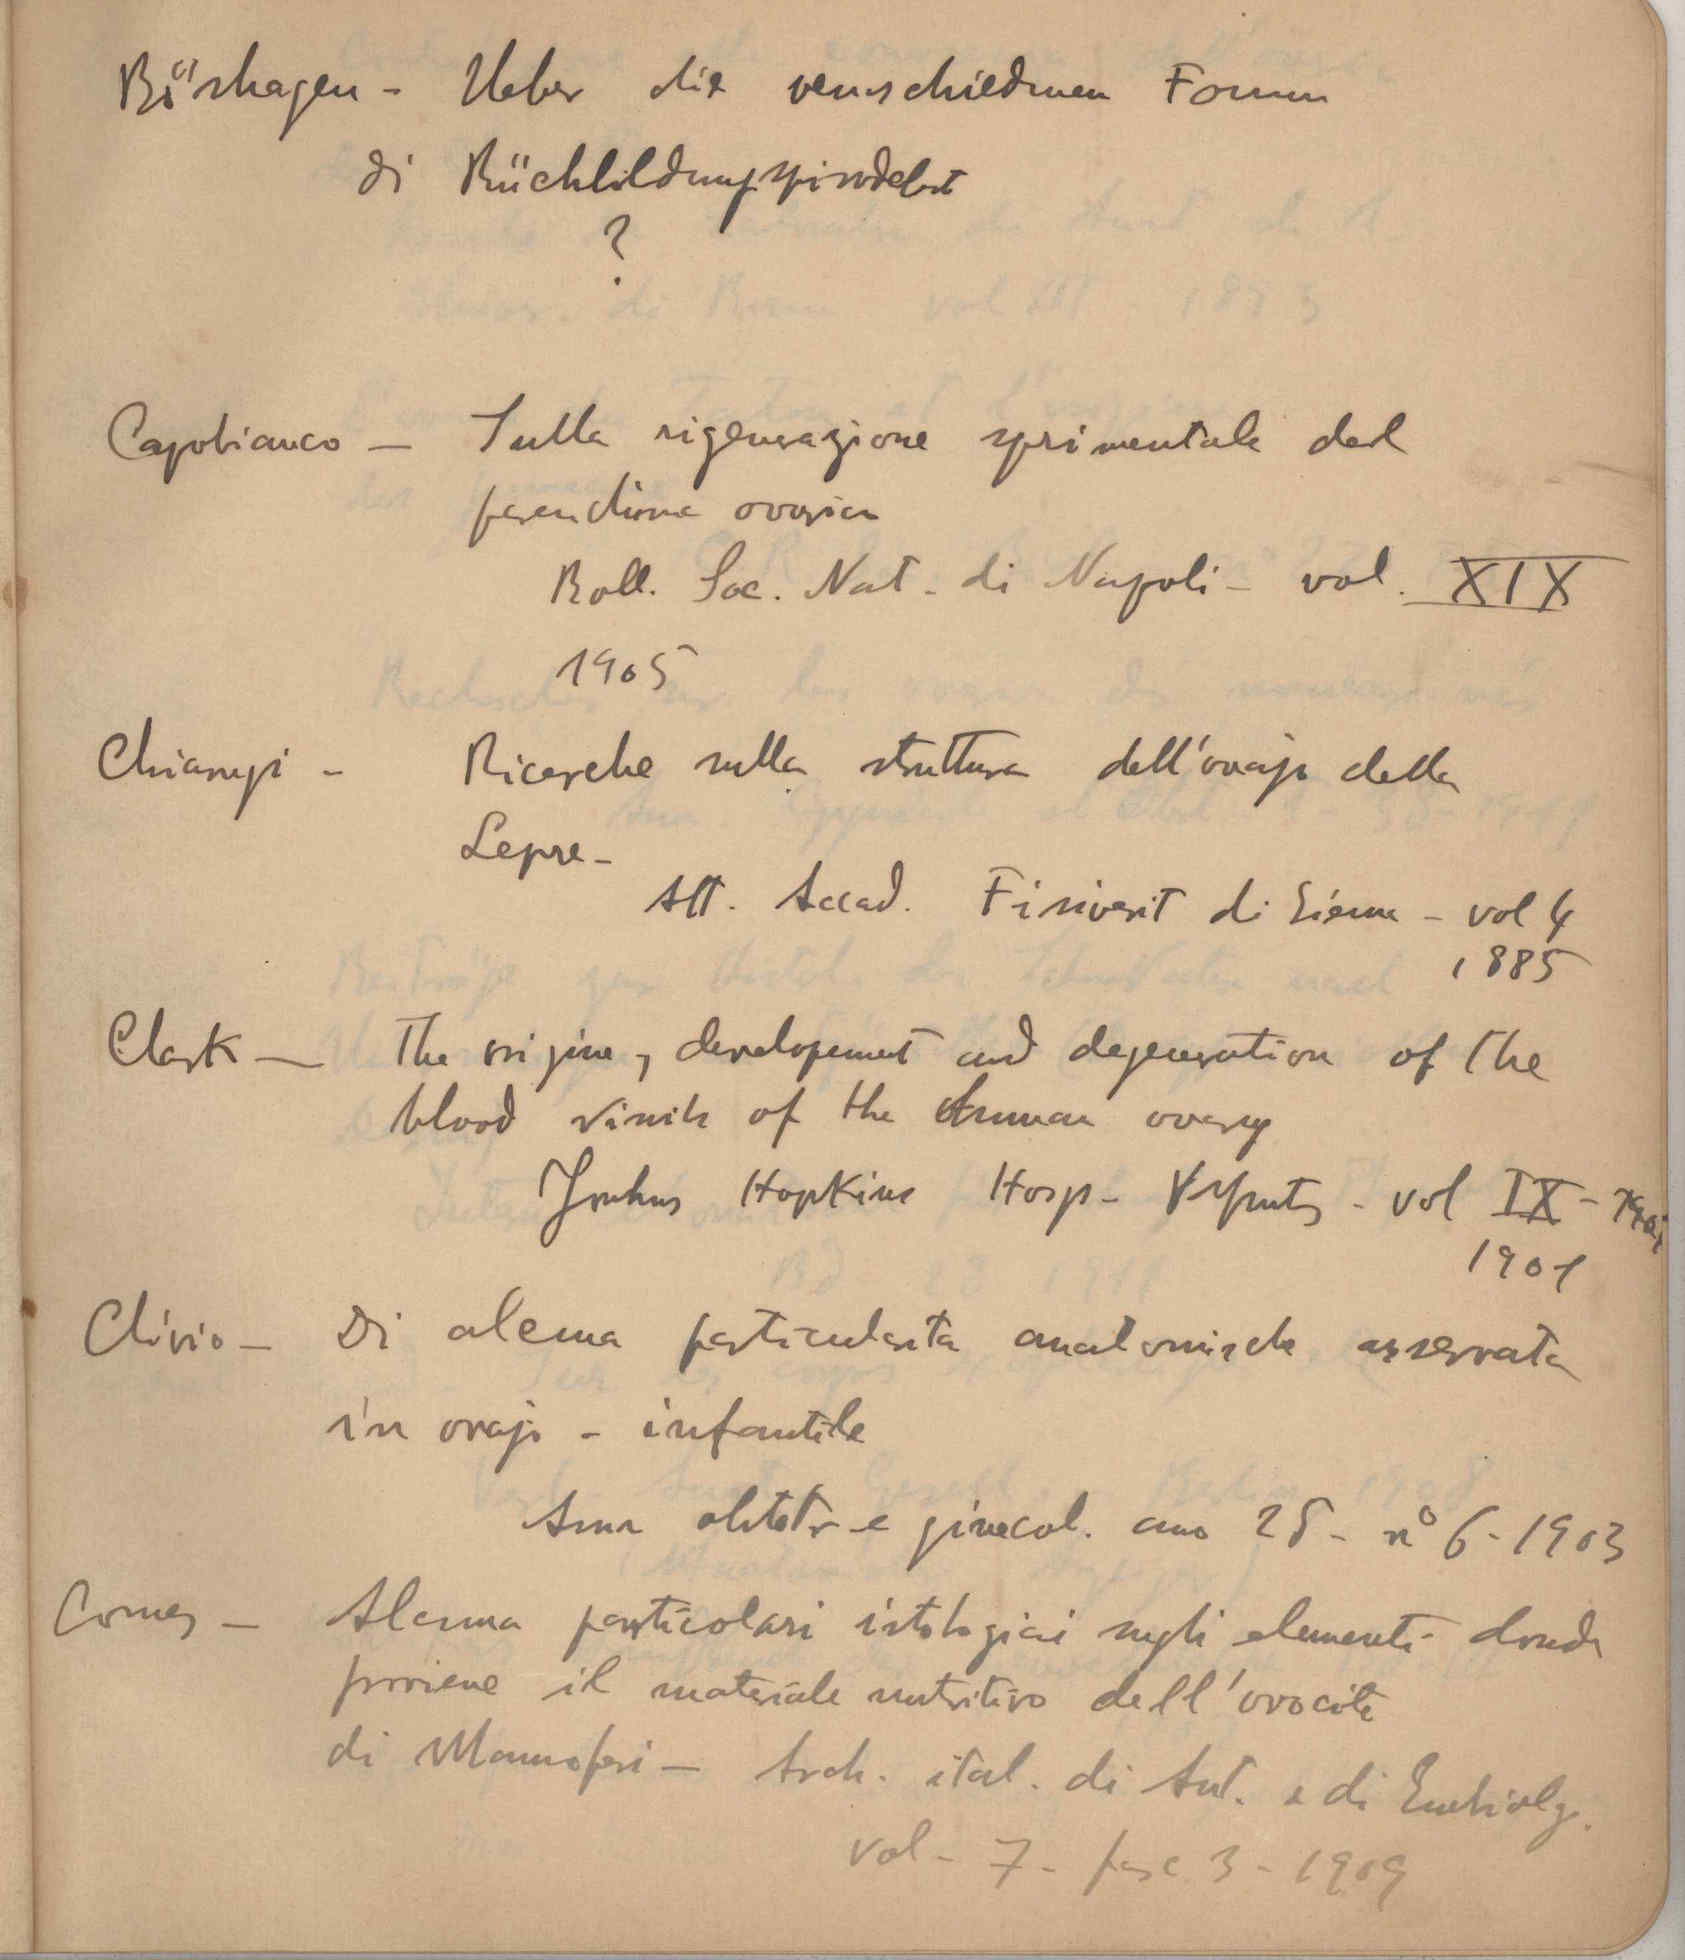 Börshagen - Ueber die verschiedenen Formen
di Rückbildungs
?
Capobianco - Sulla rigenerazione sprimentale del
parenchima ovarico
Boll. Soc. Nat. di Napoli - vol. XIX
1905
Chiarugi - Ricerche sulla struttura dell'ovajo della
Lepre -
Att. Accad. Fisiocrit di Siena - vol 4
1885
Clark - The origine, developement and degeneration of the
blood of the human ovary
Johns Hopkins Hosp - Reports - vol IX -
1901
Clivio - Di alcuna particularità anatomiche osservata
in ovajo - infantile
Ann ostetr e ginecol. ano 25 - n° 6 - 1903
Comes - Alcuna particolari istologici sugli elementi donde
proviene il materiale nutritivo dell'ovocite
di Mammiferi - Arch. ital. di Anat. e di Embriolg.
vol - 7 - fasc 3 - 1909